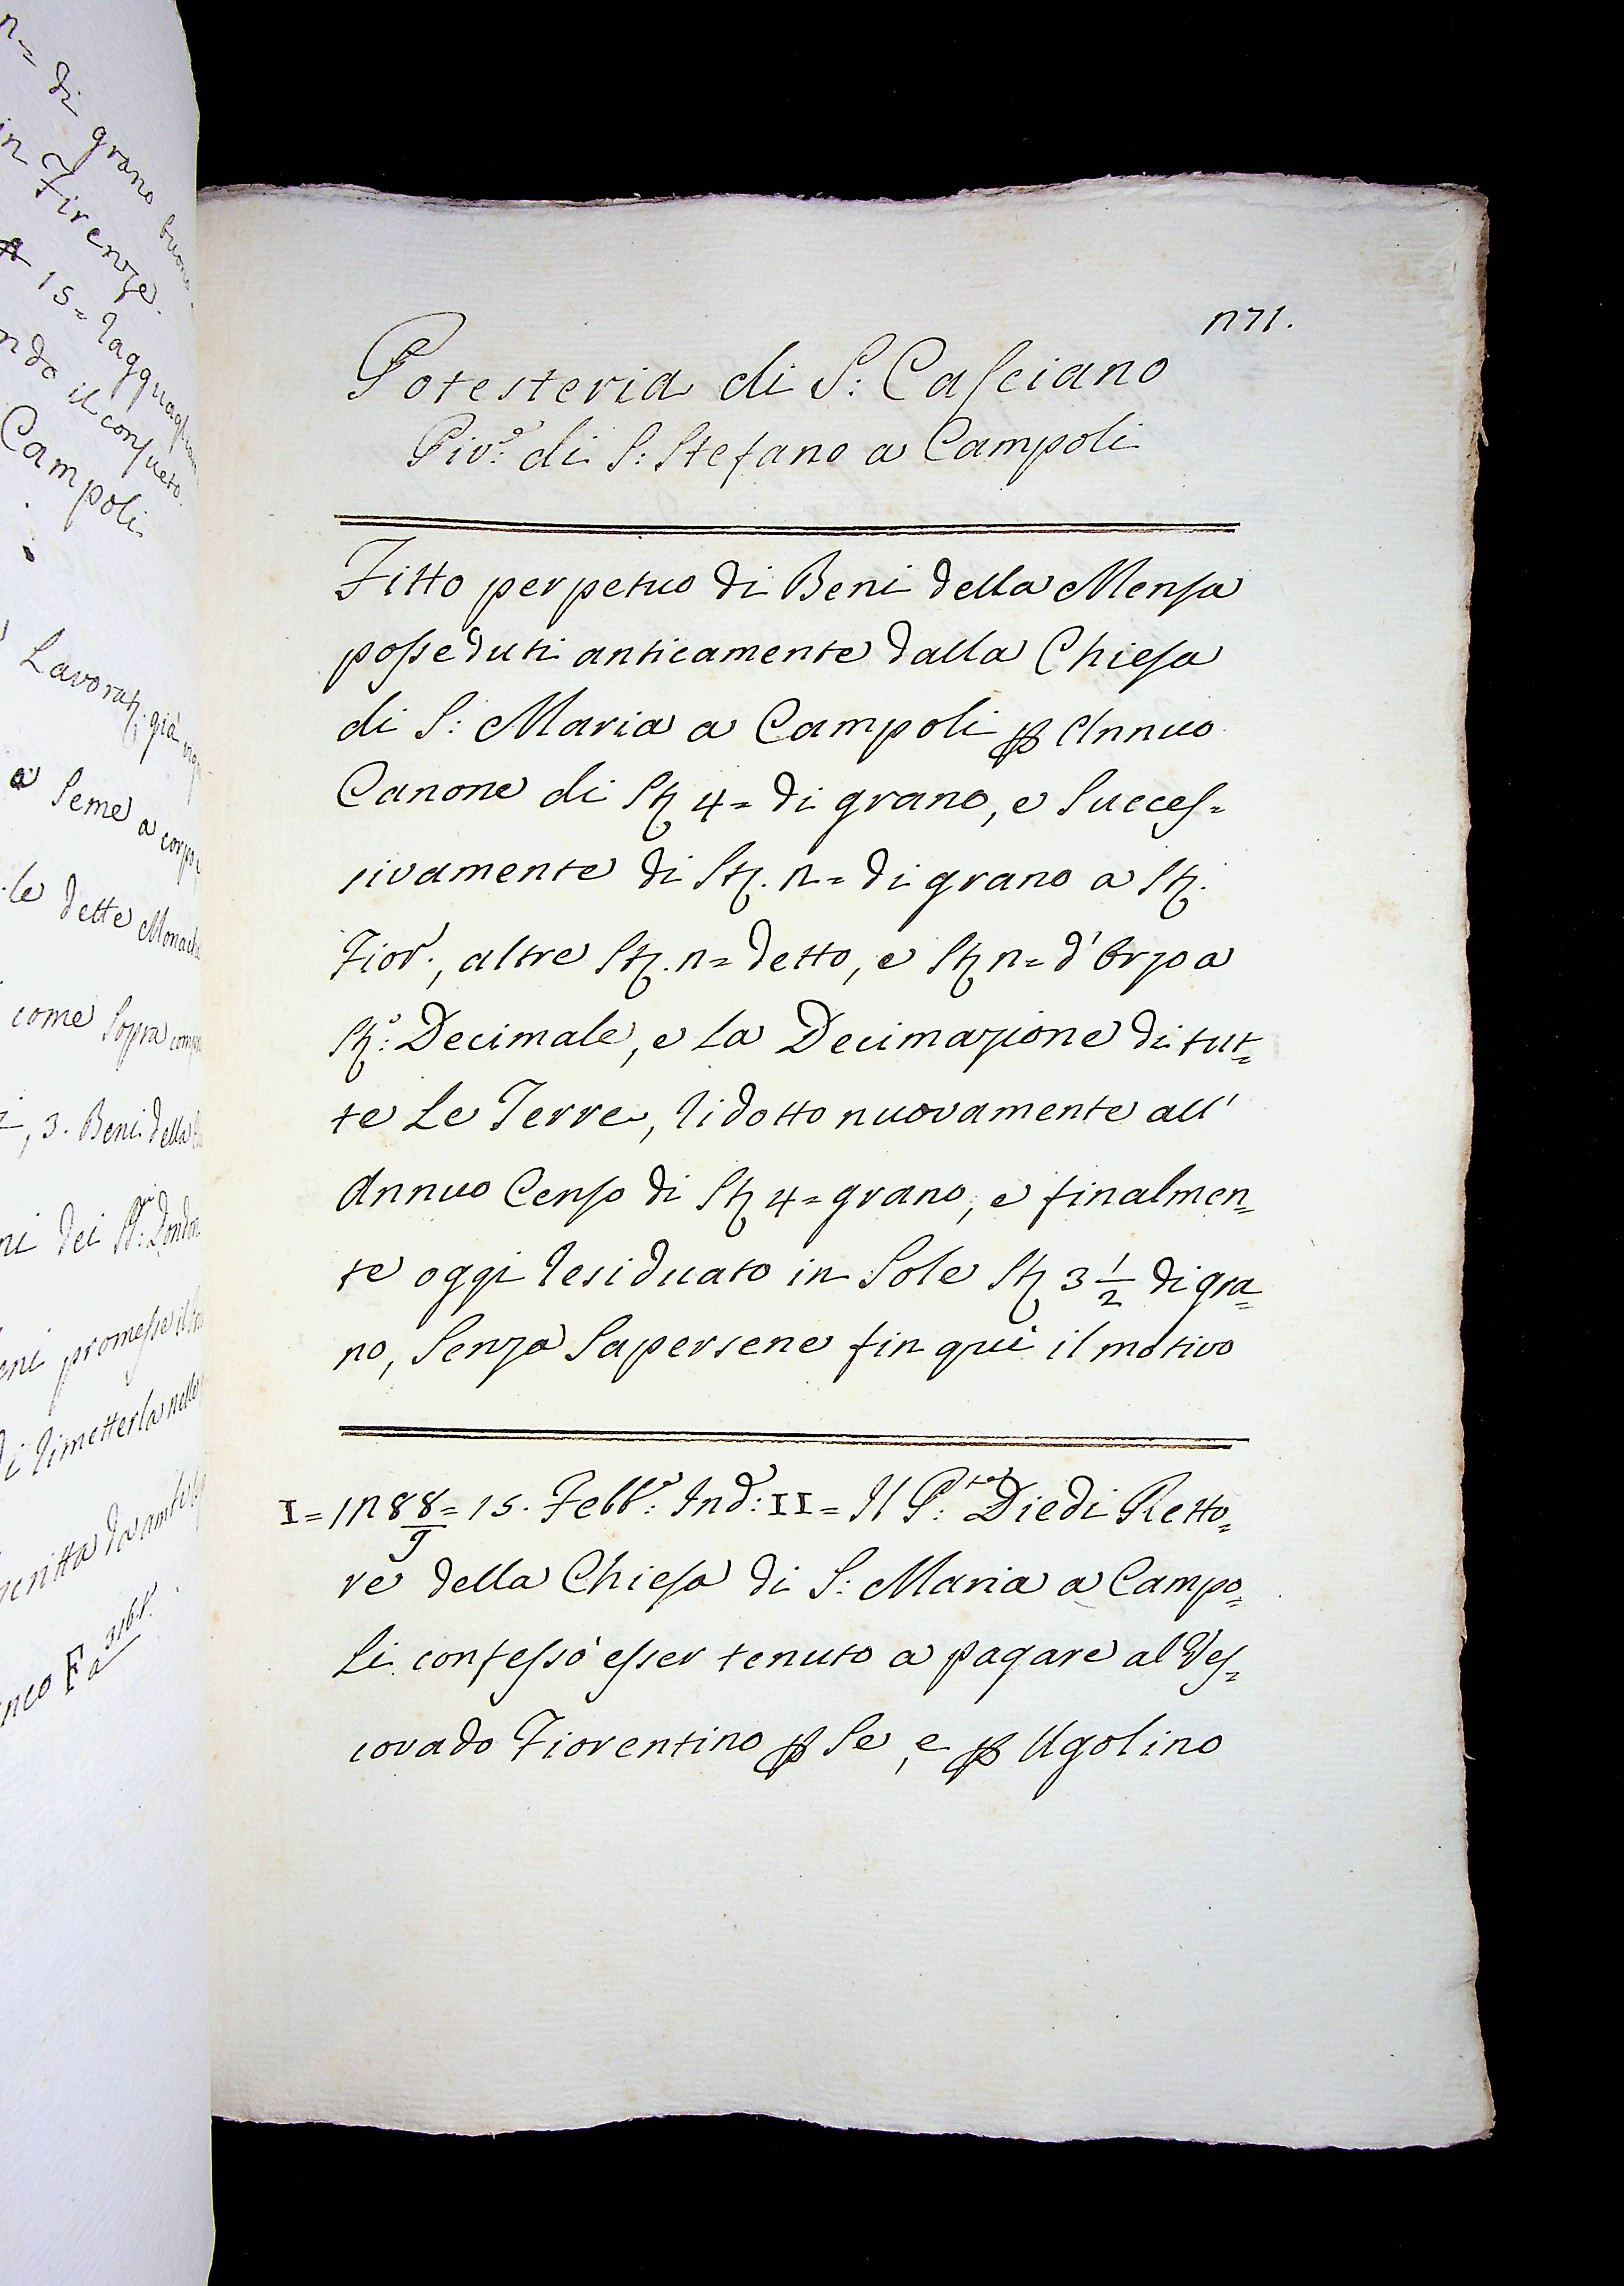 2= di grano buono
in Firenze.
15= ragguagl
ndo il consueto
Campoli
Lavorat; già
a Seme a corpo
le dette Monach
come sopra
, 3. Beni della
ni dei SS:ri
eni promesse il
di rimetterla nello
scritta da ambe
316.t.
271.
Potesteria di S: Casciano
Piv:o di S: Stefano a Campoli
Fitto perpetuo di Beni della Mensa
posseduti anticamente dalla Chiesa
di S: Maria a Campoli p Annuo
Canone di St; 4= di grano, e Succes=
sivamente di St;. 2= di grano a St;.
Fior., altre St;. 2= detto, e St; 2= d'Orzo a
St;:o Decimale, e la Decimazione di tut=
te Le Terre, ridotto nuovamente all'
Annuo Censo di St; 4= grano, e finalmen=
te oggi residuato in Sole St; 3 1/2 di gra=
no, Senza Sapersene fin qui il motivo
I= 1288/9= 15. Febb:o Ind: II= Il P:te Diedi Retto=
re della Chiesa di S: Maria a Campo=
li confessò esser tenuto a pagare al Ves=
covado Fiorentino p Se, e p Ugolino